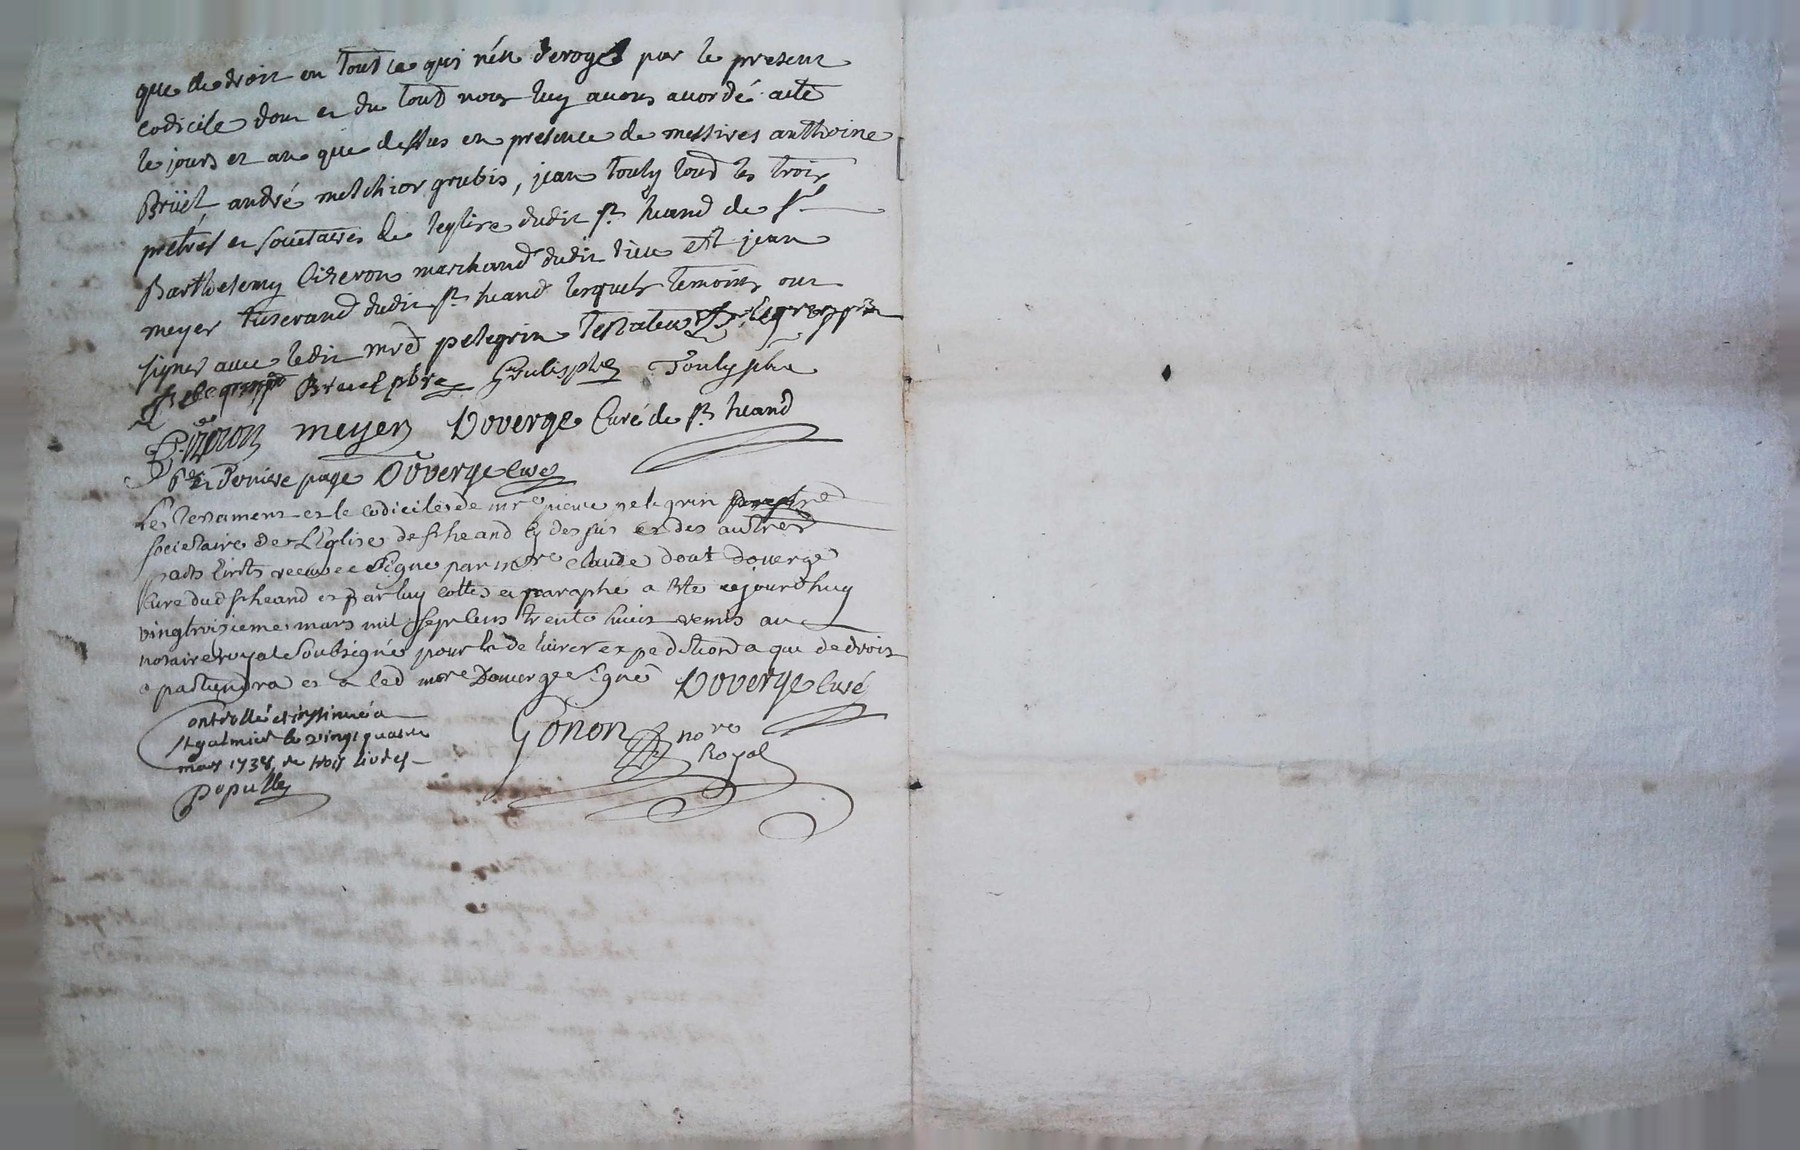 que de droit en tout ce qui n'est derogé par le present
codicile dont et du tout nous luy avons acordé acte
le jours et an que dessus en presence de messires anthoine
Brüel andré melchior grubis, jean touly tous les trois
pretres et societaires de leglise dudit st heand de sr
Barthelemy Cizeron marchand dudit lieu et jean
meyer tisserand dudit st heand lesquels temoins ont
signes avec ledit mre pelegrin testateur pelegrin ptre
pelegrin Bruel pbre Grubis ptre Touly ptre
Cizeron meyer Doverge Curé de st heand
derniere page Doverge Curé
Le Testament et le codicile de mre pelegrin
societaire de LEglise de st heand cy dessus et des autres
parts ecrits receu et signe par mre claude Doverge
Curé dud st heand et par luy cottes et paraphé a este cejourdhuy
vingtroisieme mars mil sept cens trente huict remis au
notaire royal soubsigné pour en delivrer expedition a qui de droit
apartiendra et a led mre Doverge signé Doverge Curé
Controllé et insinué a
st galmier le vingt quatre
mars 1738, re trois livres
Populle
Gonon nore
Royal